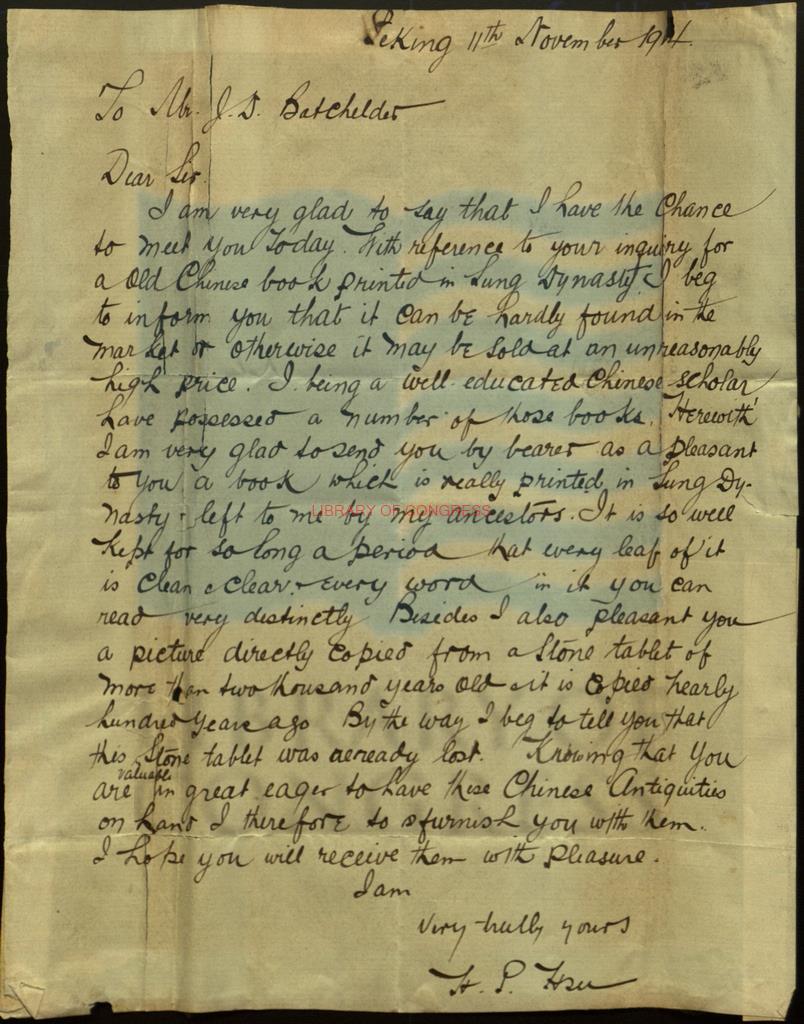 Peking 11th November 1914.
To Mr. J. D. Batchelder
Dear Sir.
I am very glad to say that I have the Chance
to meet you today. With reference to your inquiry for
a old Chinese book printed in Sung Dynasty, I beg
to inform you that it can be hardly found in the
market or otherwise it may be sold at an unreasonably
high price. I being a well-educated Chinese scholar
have possessed a number of those books. Herewith
I am very glad to send you by bearer as a pleasant
to you a book which is really printed in Sung Dy-
nasty & left to me by my ancestors. It is so well
LIBRARY OF CONGRESS
kept for so long a period that every leaf of it
is clean & clear & every word in it you can
read very distinctly Besides I also pleasant you
a picture directly copied from a Stone tablet of
more than two thousand years old & it is copied nearly
hundred years ago By the way I beg to tell you that
this Stone tablet was aeready lost. Knowing that you
are in great eager to have these valuable Chinese Antiquities
on hand I therefore to furnish you with them.
I hope you will receive them with pleasure.
I am
Very truly yours
H. P. Hsu